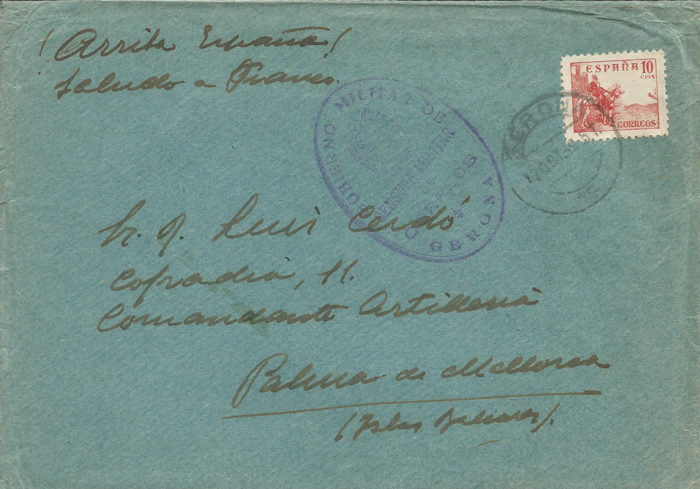 ¡Arriba España!
Saludo a Franco.
ESPAÑA 10
CTMS
CORREOS
GOBIERNO MILITAR DE
CENSURA MILITAR
GERONA
GERONA
Luis Cerdó
Cofradia, 11.
Comandante Artilleria
Palma de Mallorca
(Islas Baleares).